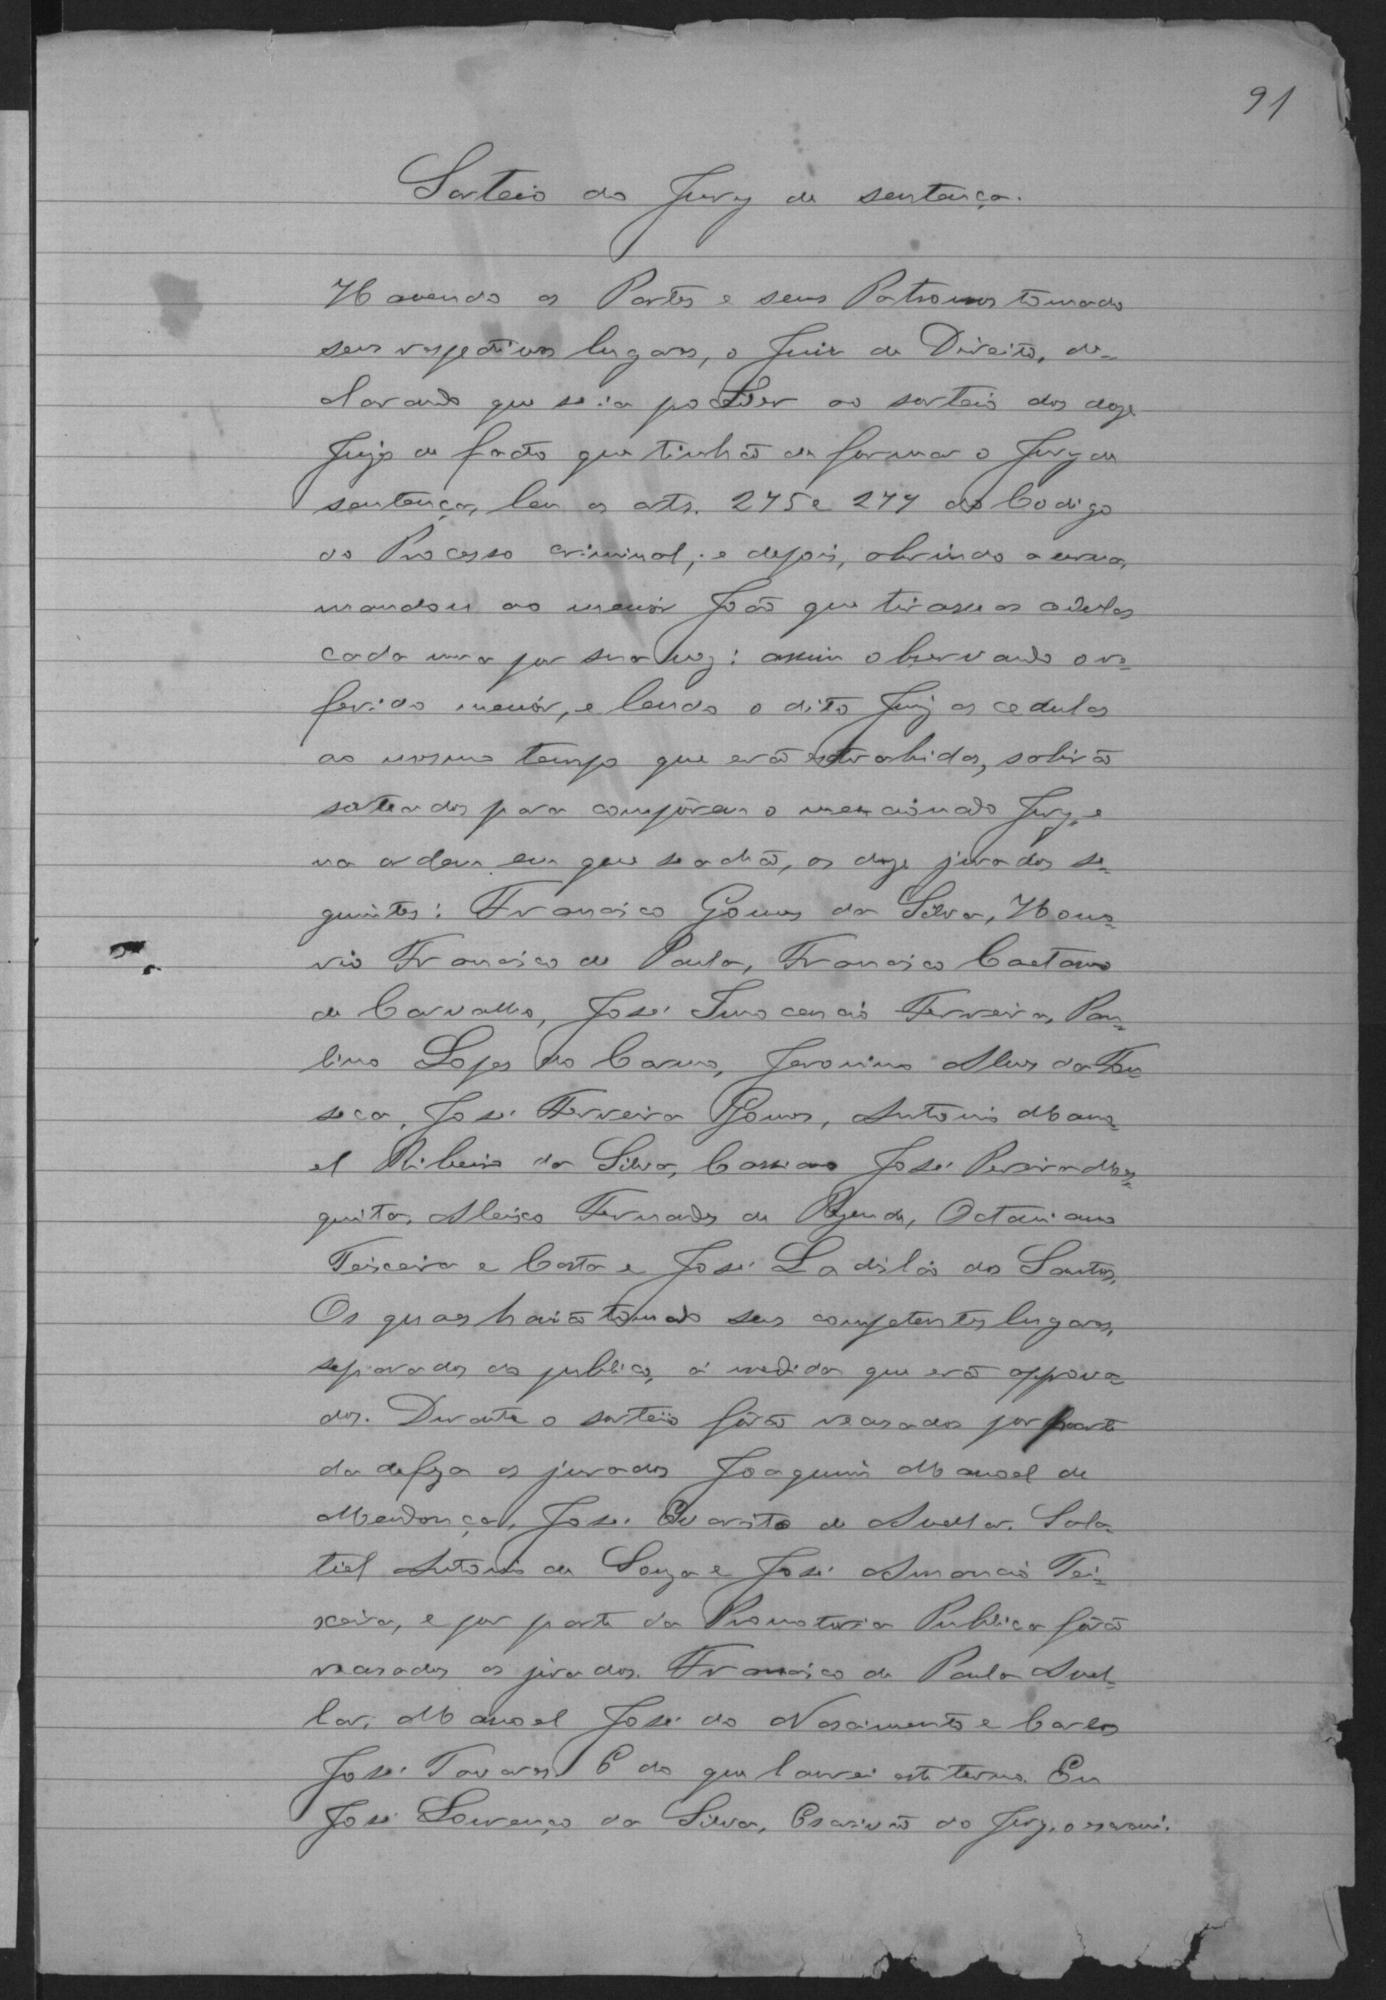 91
Sorteio do Jury de sentença.
Havendo as Partes e seus Patronos tomado
seus respectivos lugares, o Juiz de Direito, de-
clarando que se ia proceder ao sorteio dos doze
Juizes de facto que tinhão de formar o Jury de
sentença, leu os arts. 275 e 277 do Codigo
do Processo criminal; e depois, abrindo a urna,
mandou ao menór João que tirasse as cedulas
cada uma por sua vez: assim observando o re-
ferido menór, e lendo o dito Juiz as cedulas
ao mesmo tempo que erão extrahidas, sahirão
sorteados para compôrem o mencionado Jury, e
na ordem em que se achão, os doze jurados se-
guintes: Francisco Gomes da Silva, Hono-
rio Francisco de Paula, Francisco Caetano
de Carvalho, José Innocencio Ferreira, Pau-
lino Lopes do Carmo, Jeronimo Alves da Fon-
seca, José Ferreira Gomes, Antonio Mano-
el Ribeiro da Silva, Cassiano José Pereira Mes-
quita, Aleixo Fernandes de Rezende, Octaviano
Teixeira e Costa e José Ladislão dos Santos.
Os quaes havião tomado seus competentes lugares,
separados do publico, á medida que erão approva-
dos. Durante o sorteio fôrão recusados por parte
da defeza os jurados Joaquim Manoel de
Mendonça, José Evaristo de Avellar, Sala-
tiel Antonio de Souza e José Amancio Tei-
xeira, e por parte da Promotoria Publica fôrão
recusados os jurados Francisco de Paula Avel-
lar, Manoel José do Nascimento e Carlos
José Tavares. E do que lavrei este termo. Eu
José Lourenço da Silva, Escrivão do Jury, o escrevi.